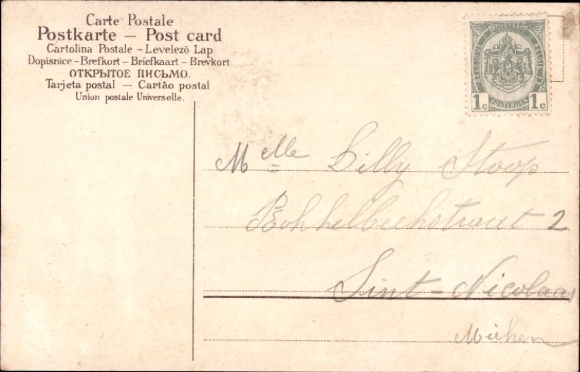 Carte Postale
Postkarte – Post card
Cartolina Postale – Levelező Lap
Dopisnice – Brefkort – Briefkaart – Brevkort
ОТКРЫТОЕ ПИСЬМО.
Tarjeta postal – Cartão postal
Union postale Universelle.
1c 1c
Melle Lilly Stoop
2
Sint-Nicolaas